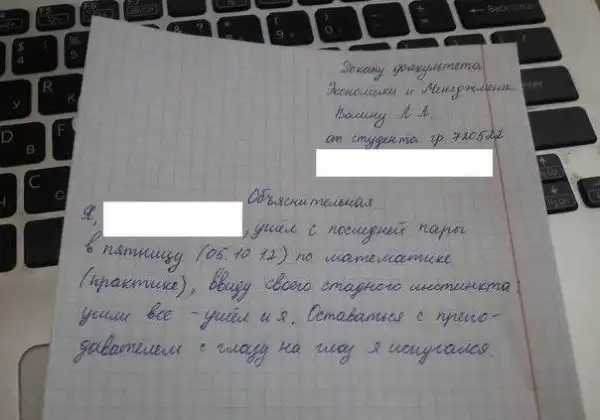 Декану факультета
Экономики и Менеджмента
Вашну Л А.
от студента гр. 720522
Объяснительная
Я, , ушёл с последней пары
в пятницу (05.10.12) по математике
(практике), ввиду своего стадного инстинкта:
ушли все - ушёл и я. Оставаться с препо-
давателем с глазу на глаз я испугался.